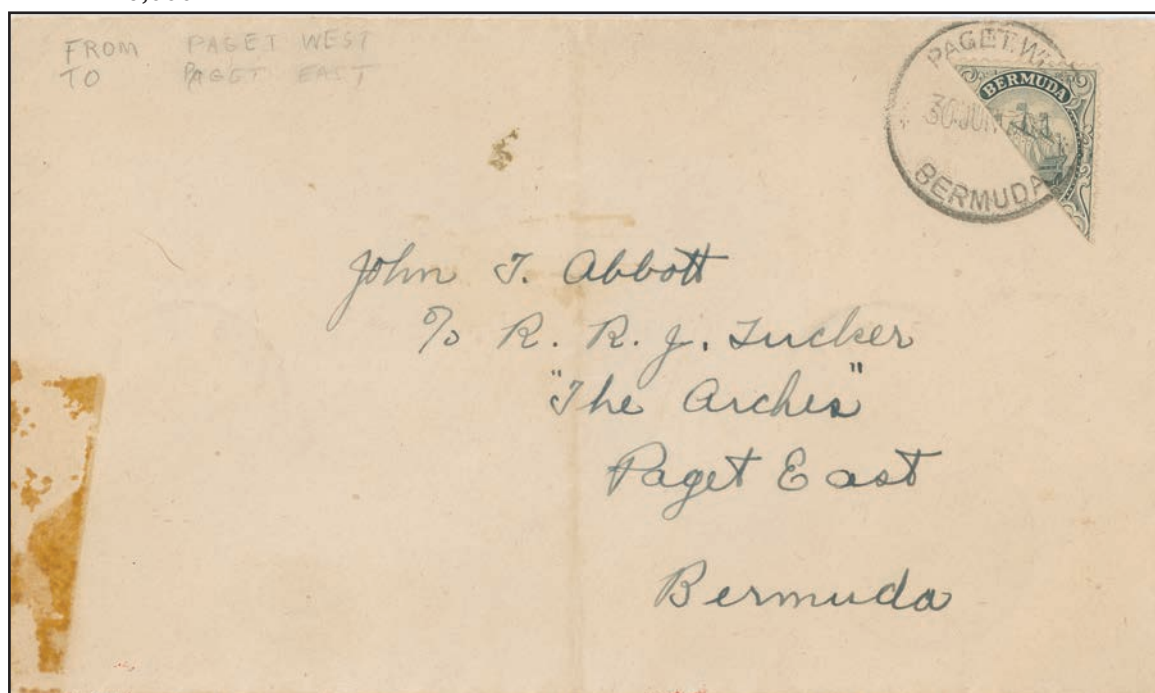 FROM PAGET WEST
TO PAGET EAST
PAGET.W
30 JUN
BERMUDA
BERMUDA
John T. Abbott
c/o R. R. J. Tucker
"The Arches"
Paget East
Bermuda